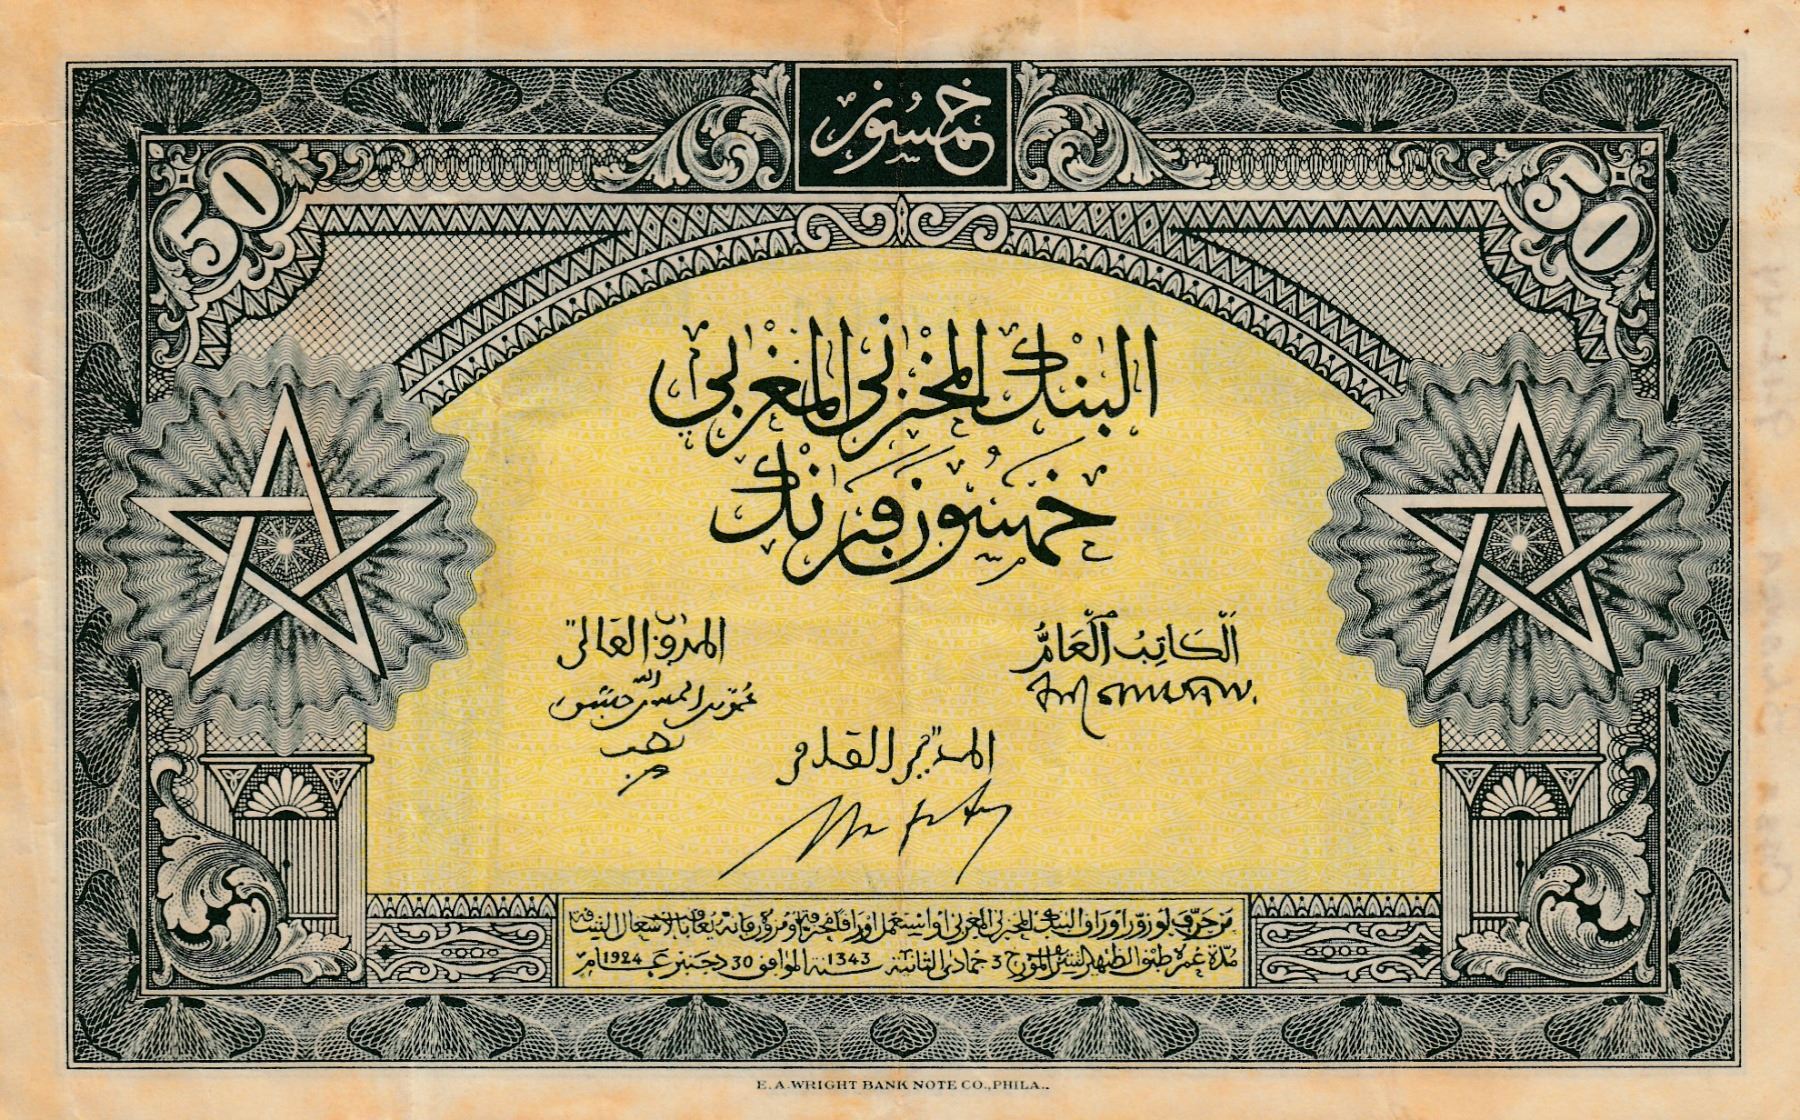 خمسون
50 50
البنك المخزني المغربي
خمسون فرنك
المندوب العالي الكاتب العام
المدير العام
من حرّف او زوّر اوراق البنك المخزني المغربي او استعمل اوراقا محرفة او مزورة فانه يعاقب بالاشغال الشاقة
مدّة عمره طبق الظهير الشريف المؤرخ 3 جمادى الثانية سنة 1343 الموافق 30 دجنبر عام 1924
E.A.WRIGHT BANK NOTE CO.,PHILA.